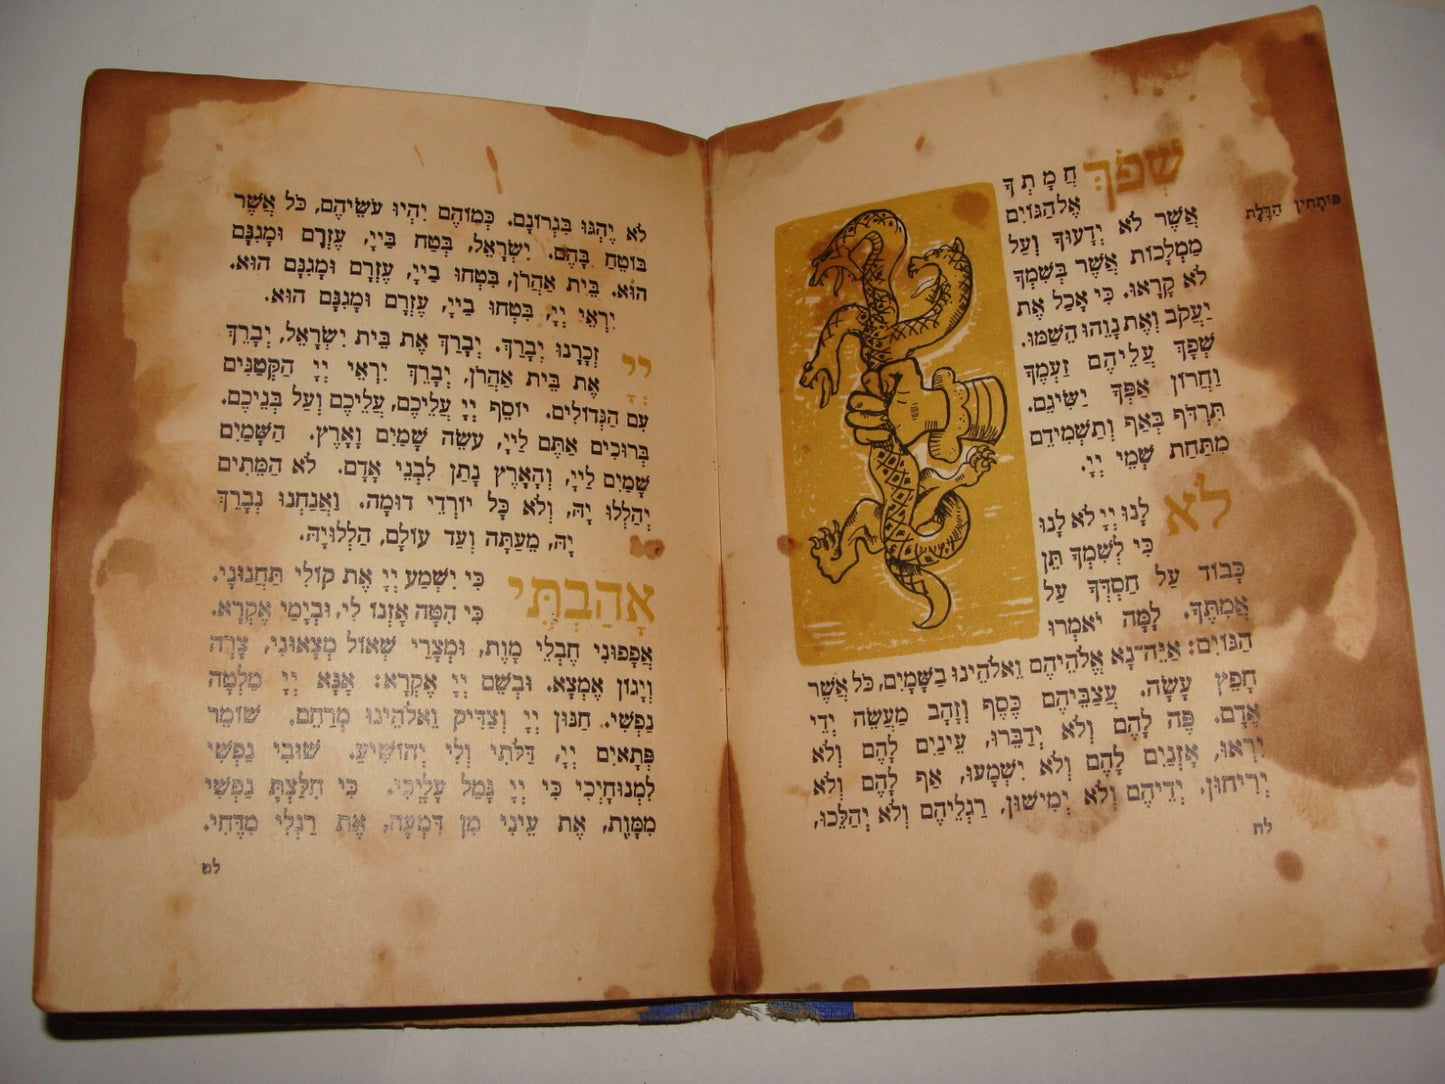 שְׁפֹךְ חֲמָתְךָ
אֶל־הַגּוֹיִם
פּוֹתְחִין הַדֶּלֶת
אֲשֶׁר לֹא יְדָעוּךָ וְעַל
מַמְלָכוֹת אֲשֶׁר בְּשִׁמְךָ
לֹא קָרָאוּ. כִּי אָכַל אֶת
יַעֲקֹב וְאֶת נָוֵהוּ הֵשַׁמּוּ.
שְׁפָךְ עֲלֵיהֶם זַעְמֶךָ
וַחֲרוֹן אַפְּךָ יַשִּׂיגֵם.
תִּרְדֹּף בְּאַף וְתַשְׁמִידֵם
מִתַּחַת שְׁמֵי יְיָ.
לֹא לָנוּ יְיָ לֹא לָנוּ
כִּי לְשִׁמְךָ תֵּן
כָּבוֹד עַל חַסְדְּךָ עַל
אֲמִתֶּךָ. לָמָּה יֹאמְרוּ
הַגּוֹיִם: אַיֵּה־נָא אֱלֹהֵיהֶם וֵאלֹהֵינוּ בַשָּׁמָיִם, כֹּל אֲשֶׁר
חָפֵץ עָשָׂה. עֲצַבֵּיהֶם כֶּסֶף וְזָהָב מַעֲשֵׂה יְדֵי
אָדָם. פֶּה לָהֶם וְלֹא יְדַבֵּרוּ, עֵינַיִם לָהֶם וְלֹא
יִרְאוּ, אָזְנַיִם לָהֶם וְלֹא יִשְׁמָעוּ, אַף לָהֶם וְלֹא
יְרִיחוּן. יְדֵיהֶם וְלֹא יְמִישׁוּן, רַגְלֵיהֶם וְלֹא יְהַלֵּכוּ,
לח
לֹא יֶהְגּוּ בִּגְרוֹנָם. כְּמוֹהֶם יִהְיוּ עֹשֵׂיהֶם, כֹּל אֲשֶׁר
בּוֹטֵחַ בָּהֶם. יִשְׂרָאֵל, בְּטַח בַּייָ, עֶזְרָם וּמָגִנָּם
הוּא. בֵּית אַהֲרֹן, בִּטְחוּ בַייָ, עֶזְרָם וּמָגִנָּם הוּא.
יִרְאֵי יְיָ, בִּטְחוּ בַייָ, עֶזְרָם וּמָגִנָּם הוּא.
יְיָ זְכָרָנוּ יְבָרֵךְ. יְבָרֵךְ אֶת בֵּית יִשְׂרָאֵל, יְבָרֵךְ
אֶת בֵּית אַהֲרֹן, יְבָרֵךְ יִרְאֵי יְיָ הַקְּטַנִּים
עִם הַגְּדוֹלִים. יוֹסֵף יְיָ עֲלֵיכֶם, עֲלֵיכֶם וְעַל בְּנֵיכֶם.
בְּרוּכִים אַתֶּם לַייָ, עֹשֵׂה שָׁמַיִם וָאָרֶץ. הַשָּׁמַיִם
שָׁמַיִם לַייָ, וְהָאָרֶץ נָתַן לִבְנֵי אָדָם. לֹא הַמֵּתִים
יְהַלְלוּ יָהּ, וְלֹא כָּל יוֹרְדֵי דוּמָה. וַאֲנַחְנוּ נְבָרֵךְ
יָהּ, מֵעַתָּה וְעַד עוֹלָם, הַלְלוּיָהּ.
אָהַבְתִּי כִּי יִשְׁמַע יְיָ אֶת קוֹלִי תַּחֲנוּנָי.
כִּי הִטָּה אָזְנוֹ לִי, וּבְיָמַי אֶקְרָא.
אֲפָפוּנִי חֶבְלֵי מָוֶת, וּמְצָרֵי שְׁאוֹל מְצָאוּנִי, צָרָה
וְיָגוֹן אֶמְצָא. וּבְשֵׁם יְיָ אֶקְרָא: אָנָּא יְיָ מַלְּטָה
נַפְשִׁי. חַנּוּן יְיָ וְצַדִּיק וֵאלֹהֵינוּ מְרַחֵם. שׁוֹמֵר
פְּתָאיִם יְיָ, דַּלֹּתִי וְלִי יְהוֹשִׁיעַ. שׁוּבִי נַפְשִׁי
לִמְנוּחָיְכִי כִּי יְיָ גָּמַל עָלָיְכִי. כִּי חִלַּצְתָּ נַפְשִׁי
מִמָּוֶת, אֶת עֵינִי מִן דִּמְעָה, אֶת רַגְלִי מִדֶּחִי.
לט